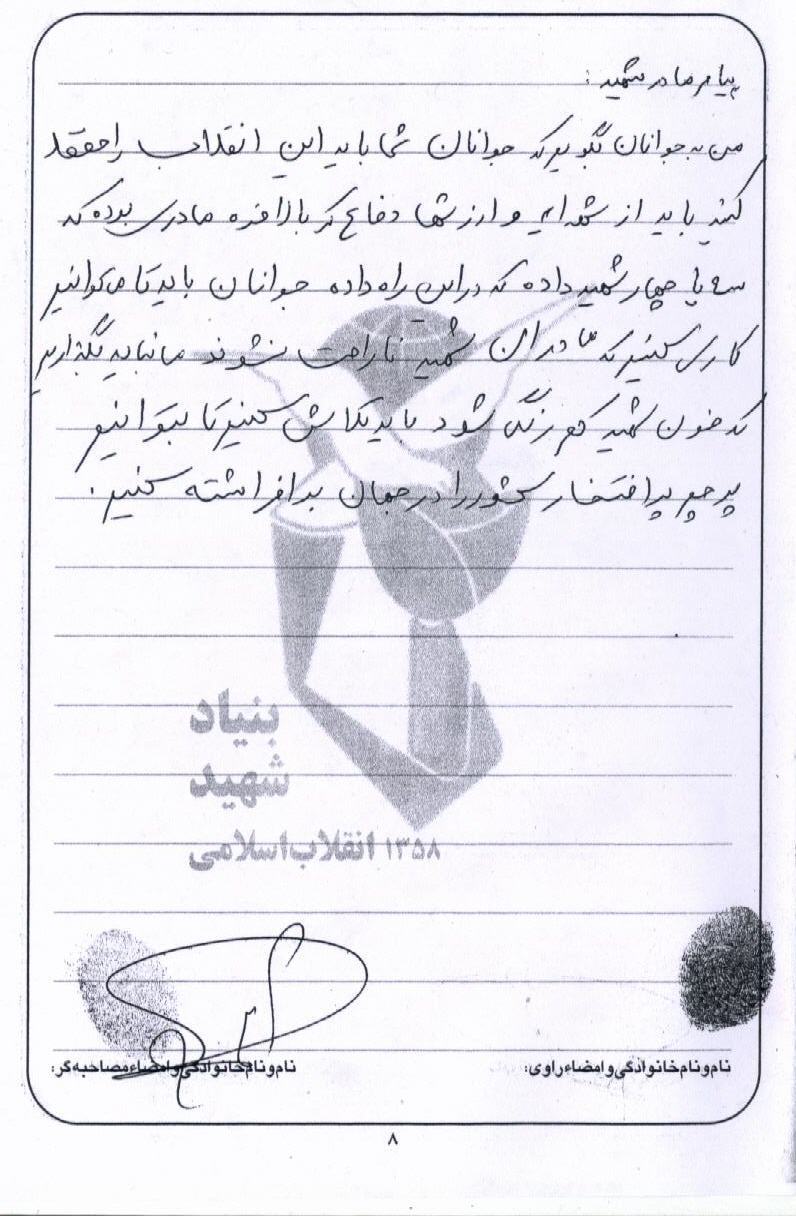 پیام مادر شهید :
من به جوانان بگویم که جوانان شما باید این انقلاب را حفظ
کنید باید از شهدای و ارزشها دفاع کرد بالاخره مادری بوده که
سه یا چهار شهید داده که در این راه داده جوانان باید تا می توانیم
کاری کنیم که مادران شهید ناراحت نشوند ما نباید بگذاریم
که خون شهید کم رنگ شود باید تلاش کنیم تا بتوانیم
پرچم پر افتخار کشور را در جهان بر افراشته کنیم .
بنیاد
شهید
انقلاب اسلامی ۱۳۵۸
نام و نام خانوادگی و امضاء راوی: نام و نام خانوادگی و امضاء مصاحبه گر:
۸